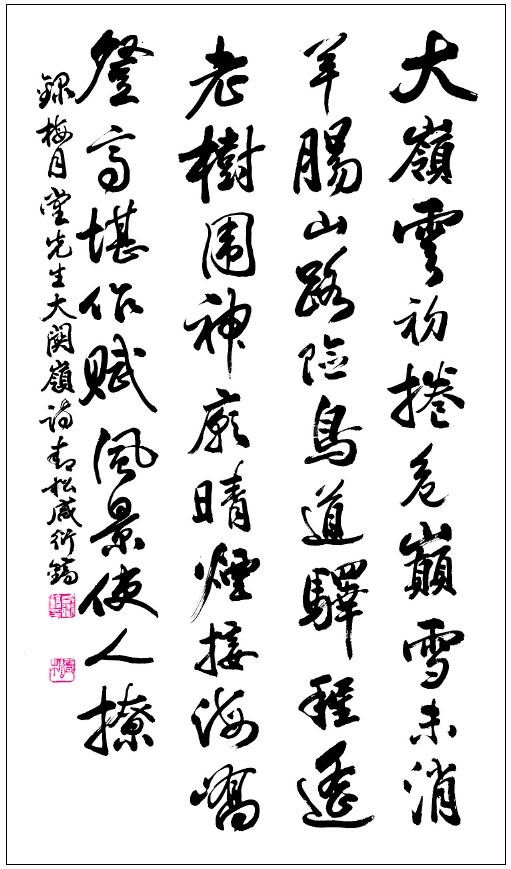 大嶺雲初捲危巔雪未消
羊腸山路險鳥道驛程遙
老樹圍神廟晴煙接海嶠
登高堪作賦風景使人撩
錄梅月堂先生大関嶺詩青松咸衍鎬